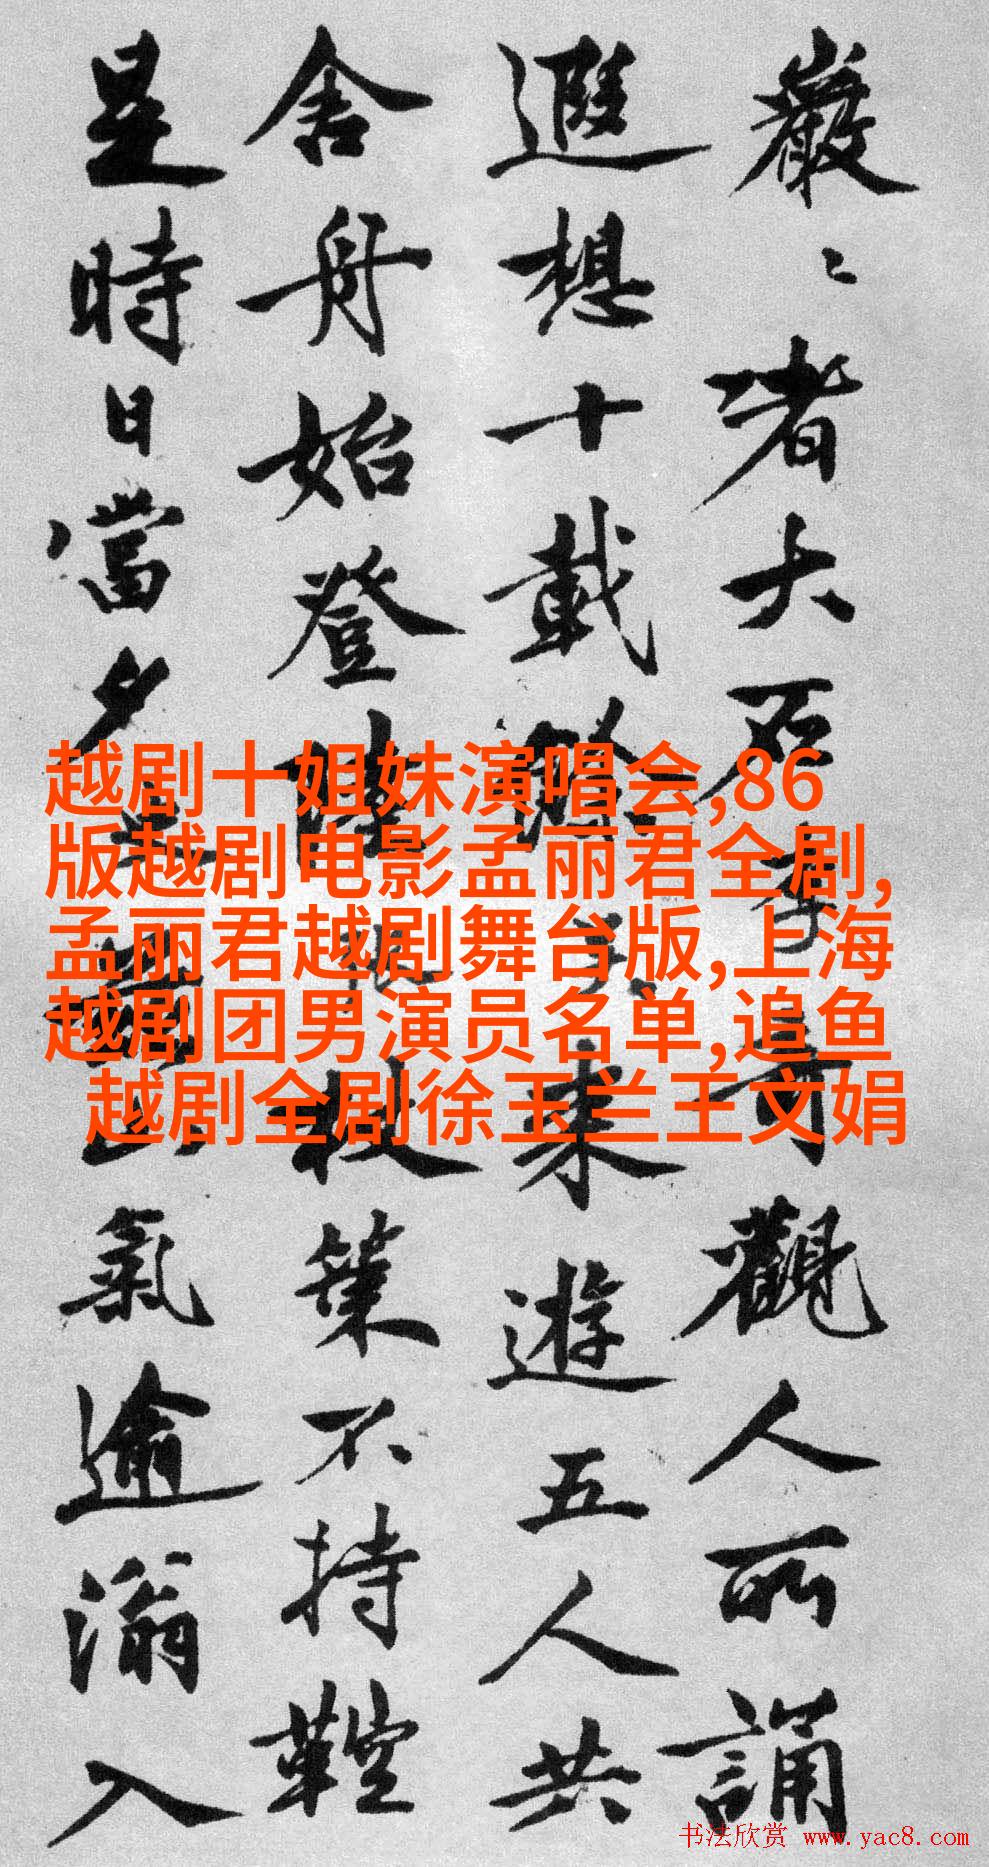 巖〻者大石李哥觀人所誦
遐想十載餘未來遊五人共
舍舟始登陸杖策不持鞚
是時日當夕氣逾滃入
越剧十姐妹演唱会,86
版越剧电影孟丽君全剧,
孟丽君越剧舞台版,上海
越剧团男演员名单,追鱼
越剧全剧徐玉兰王文娟
书法欣赏 www.yac8.com